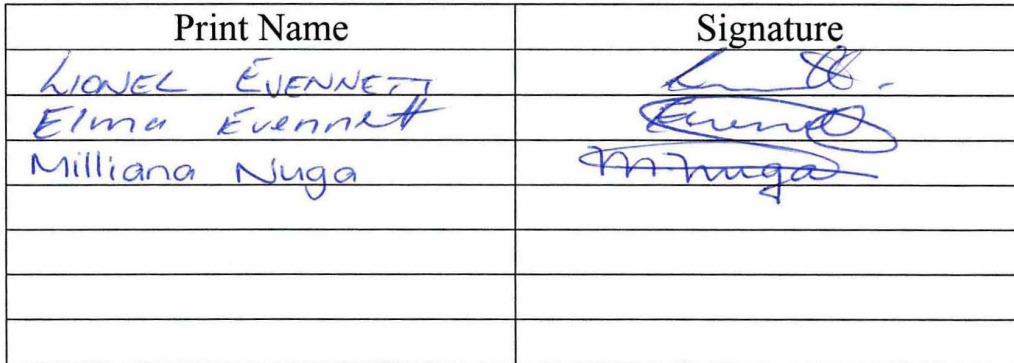 Print Name Signature
LIONEL EVENNETT
Elma Evennett
Milliana Nuga M Nuga